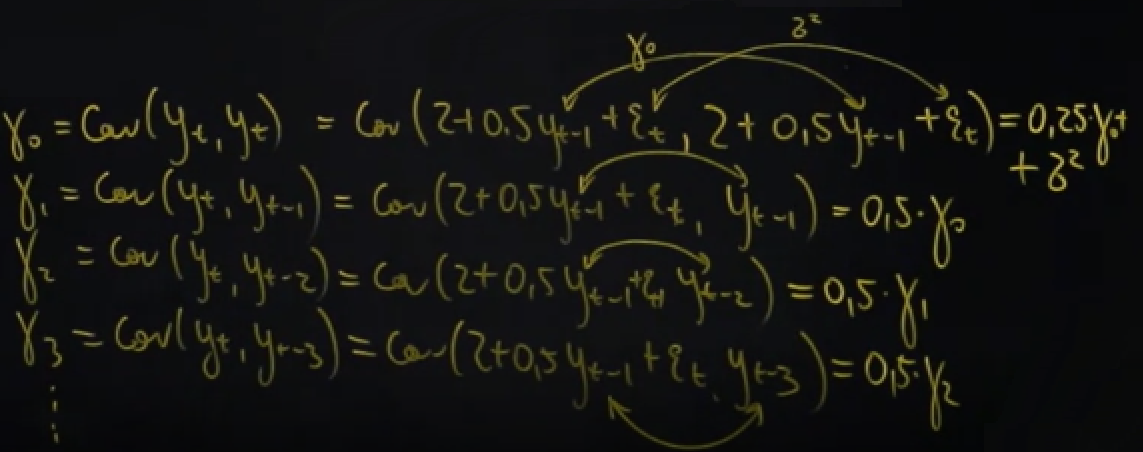 γ₀ δ²
γ₀ = Cov(y_t, y_t) = Cov(2+0.5y_{t-1} + ε_t, 2+0,5y_{t-1} + ε_t) = 0,25·γ₀+
+ δ²
γ₁ = Cov(y_t, y_{t-1}) = Cov(2+0,5y_{t-1} + ε_t, y_{t-1}) = 0,5·γ₀
γ₂ = Cov(y_t, y_{t-2}) = Cov(2+0,5y_{t-1}+ε_t, y_{t-2}) = 0,5·γ₁
γ₃ = Cov(y_t, y_{t-3}) = Cov(2+0,5y_{t-1} + ε_t, y_{t-3}) = 0,5·γ₂
⋮